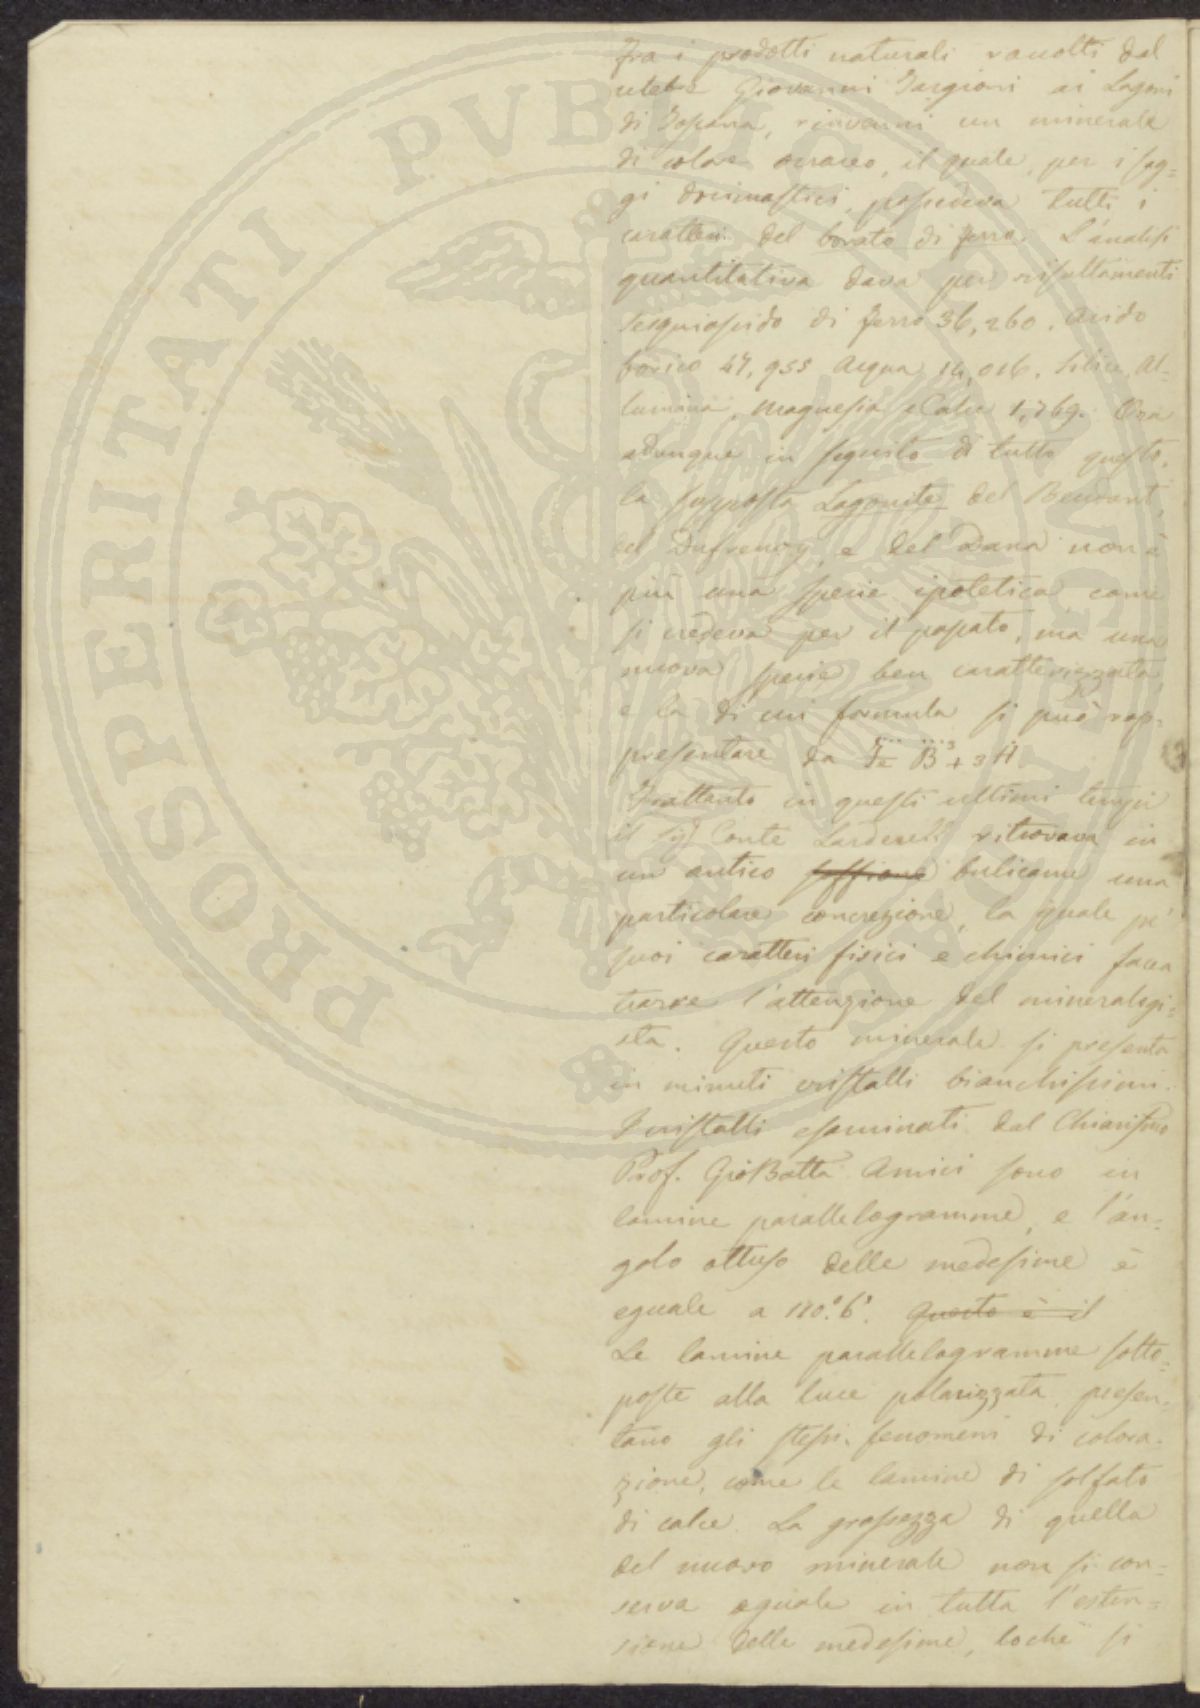 Fra i prodotti naturali raccolti dal
celebre Giovanni Targioni ai Lagoni
di Toscana, rinvenni un minerale
di colore ocraceo, il quale, per i sag=
gi docimastici, possedeva tutti i
caratteri del borato di ferro. L'analisi
quantitativa dava per risultamenti
Sesquiossido di ferro 36,260. Acido
borico 47,955 Acqua 14,016. Silice, Al=
lumina, Magnesia e Calce 1,769. Ora
adunque in seguito di tutto questo,
la supposta Lagonite del Beudant,
del Dufrenoy, e del Dana non è
più una specie ipotetica come
si credeva per il passato, ma una
nuova specie ben caratterizzata,
e la di cui formula si può rap=
presentare da Fe B³ + 3H.
Frattanto in questi ultimi tempi
il Sig Conte Larderell ritrovava in
un antico soffione bulicame una
particolare concrezione, la quale pe'
suoi caratteri fisici e chimici facea
trarre l'attenzione del mineralogi=
sta. Questo minerale si presenta
in minuti cristalli bianchissimi.
I cristalli esaminati dal Chiarissimo
Prof. GioBatta Amici sono in
lamine parallelogramme, e l'an=
golo ottuso delle medesime è
eguale a 110.° 6'. Questo è il
Le lamine parallelogramme sotto=
poste alla luce polarizzata, presen=
tano gli stessi fenomeni di colora=
zione, come le lamine di solfato
di calce. La grossezza di quella
del nuovo minerale non si con=
serva eguale in tutta l'esten=
sione delle medesime, lochè si
PROSPERITATI PUBLICAE